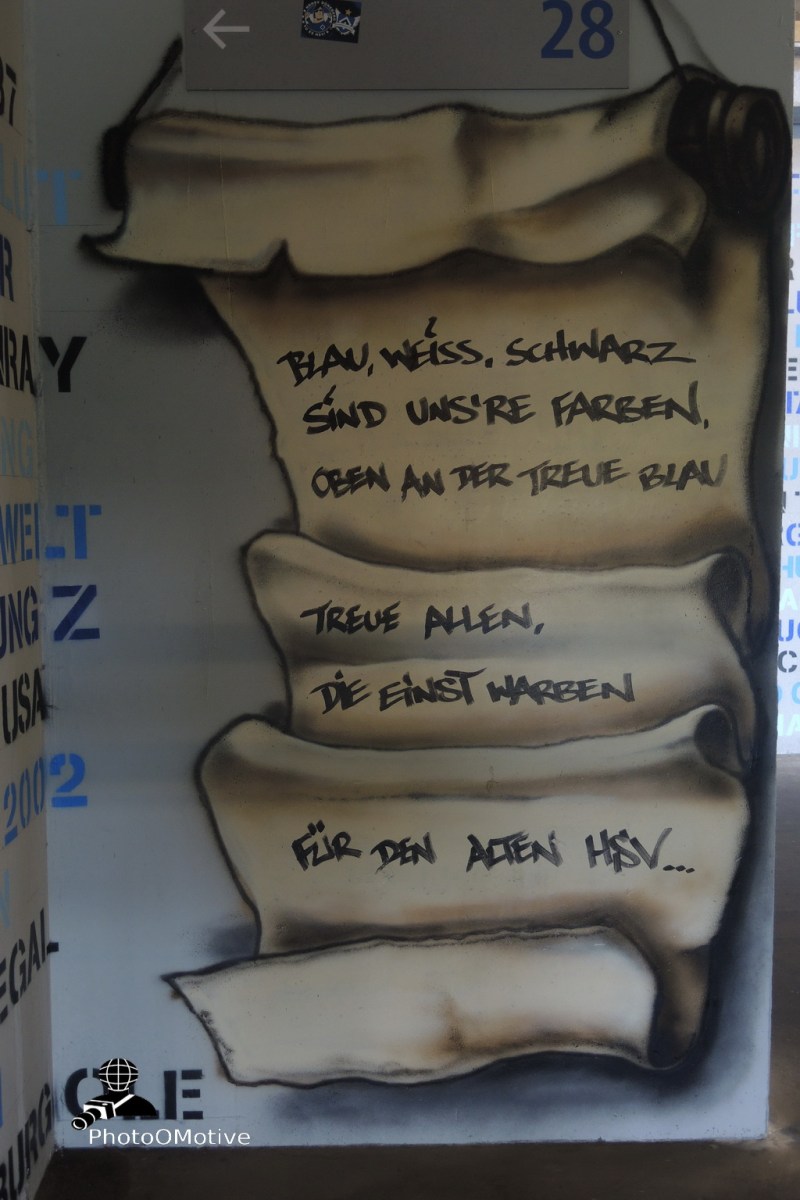 28
BLAU, WEISS, SCHWARZ
SIND UNS'RE FARBEN,
OBEN AN DER TREUE BLAU
TREUE ALLEN,
DIE EINST WARBEN
FÜR DEN ALTEN HSV...
37
Y
WELT
UNG Z
USA
2002
EGAL
BURG
PhotoOMotive